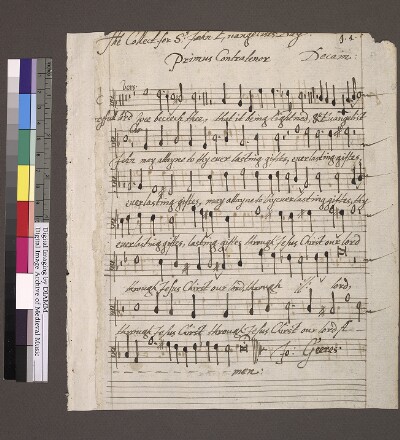 The Collect for St. John Evangelistes Day
Primus Contratenor Decani:
vers:
Lord we beseech thee, that it being lightned
Cho
may attayne to thy everlasting giftes, everlasting giftes,
everlasting giftes, may attayne to thy everlasting giftes, thy
everlasting giftes, lasting giftes through Jesus Christ our lord
through Jesus Christ our lord, through lord,
through Jesus Christ through Jesus Christ our lord A
men: Jo: Geeres
Digital Imaging by DIAMM
Digital Image Archive of Medieval Music